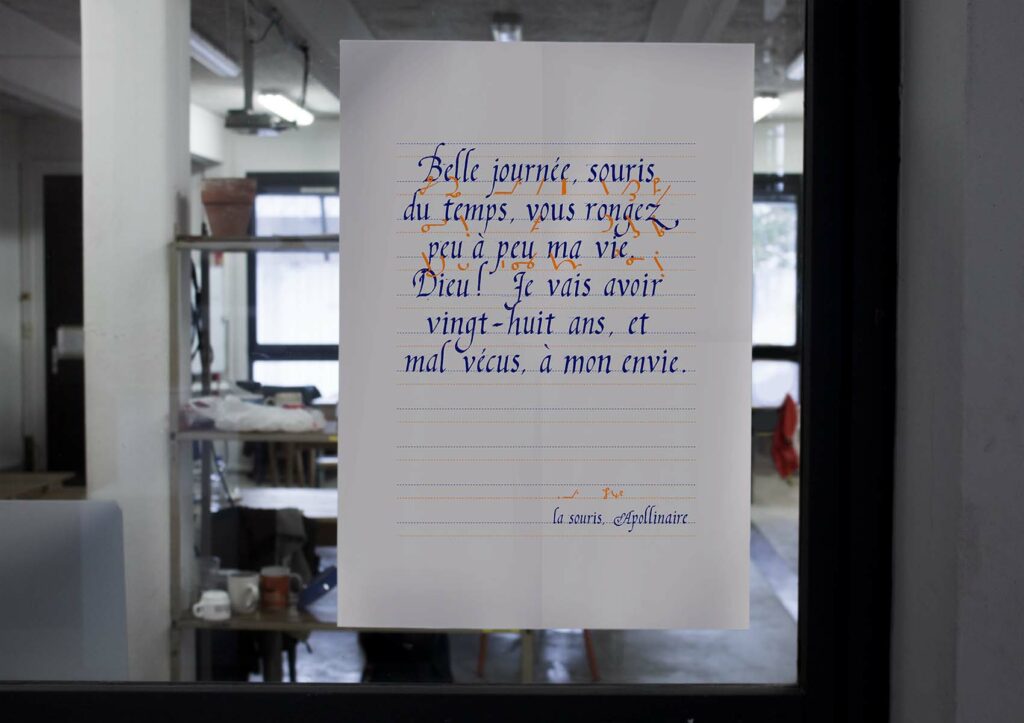 Belle journée, souris
du temps, vous rongez
peu à peu ma vie.
Dieu ! Je vais avoir
vingt-huit ans, et
mal vécus, à mon envie.
la souris, Apollinaire